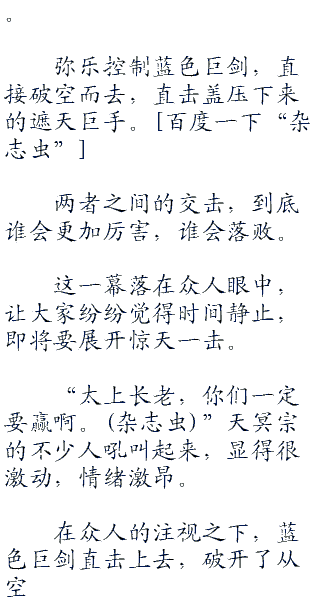 。
弥乐控制蓝色巨剑，直
接破空而去，直击盖压下来
的遮天巨手。[百度一下“杂
志虫”]
两者之间的交击，到底
谁会更加厉害，谁会落败。
这一幕落在众人眼中，
让大家纷纷觉得时间静止，
即将要展开惊天一击。
“太上长老，你们一定
要赢啊。(杂志虫)”天冥宗
的不少人吼叫起来，显得很
激动，情绪激昂。
在众人的注视之下，蓝
色巨剑直击上去，破开了从
空